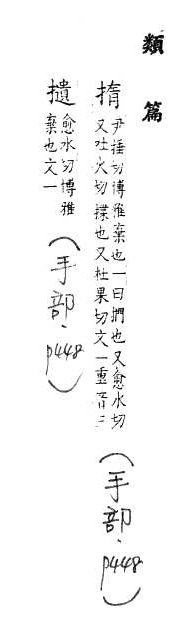 類篇
揹尹捶切博雅棄也一曰捫也又愈水切
又吐火切揲也又杜果切文一重音三
(手部、p448)
攆愈水切博雅
棄也文一
(手部、p448)